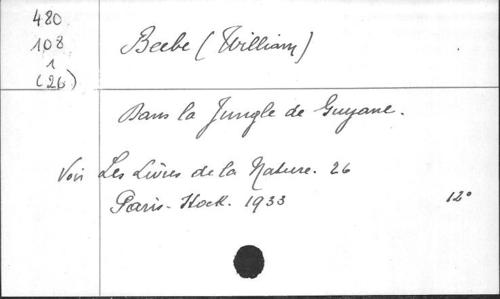 480.
108
1
(26)
Beebe (William)
Dans la Jungle de Guyane.
Voir Les Livres de la Nature. 26
Paris - Stock. 1933 12°